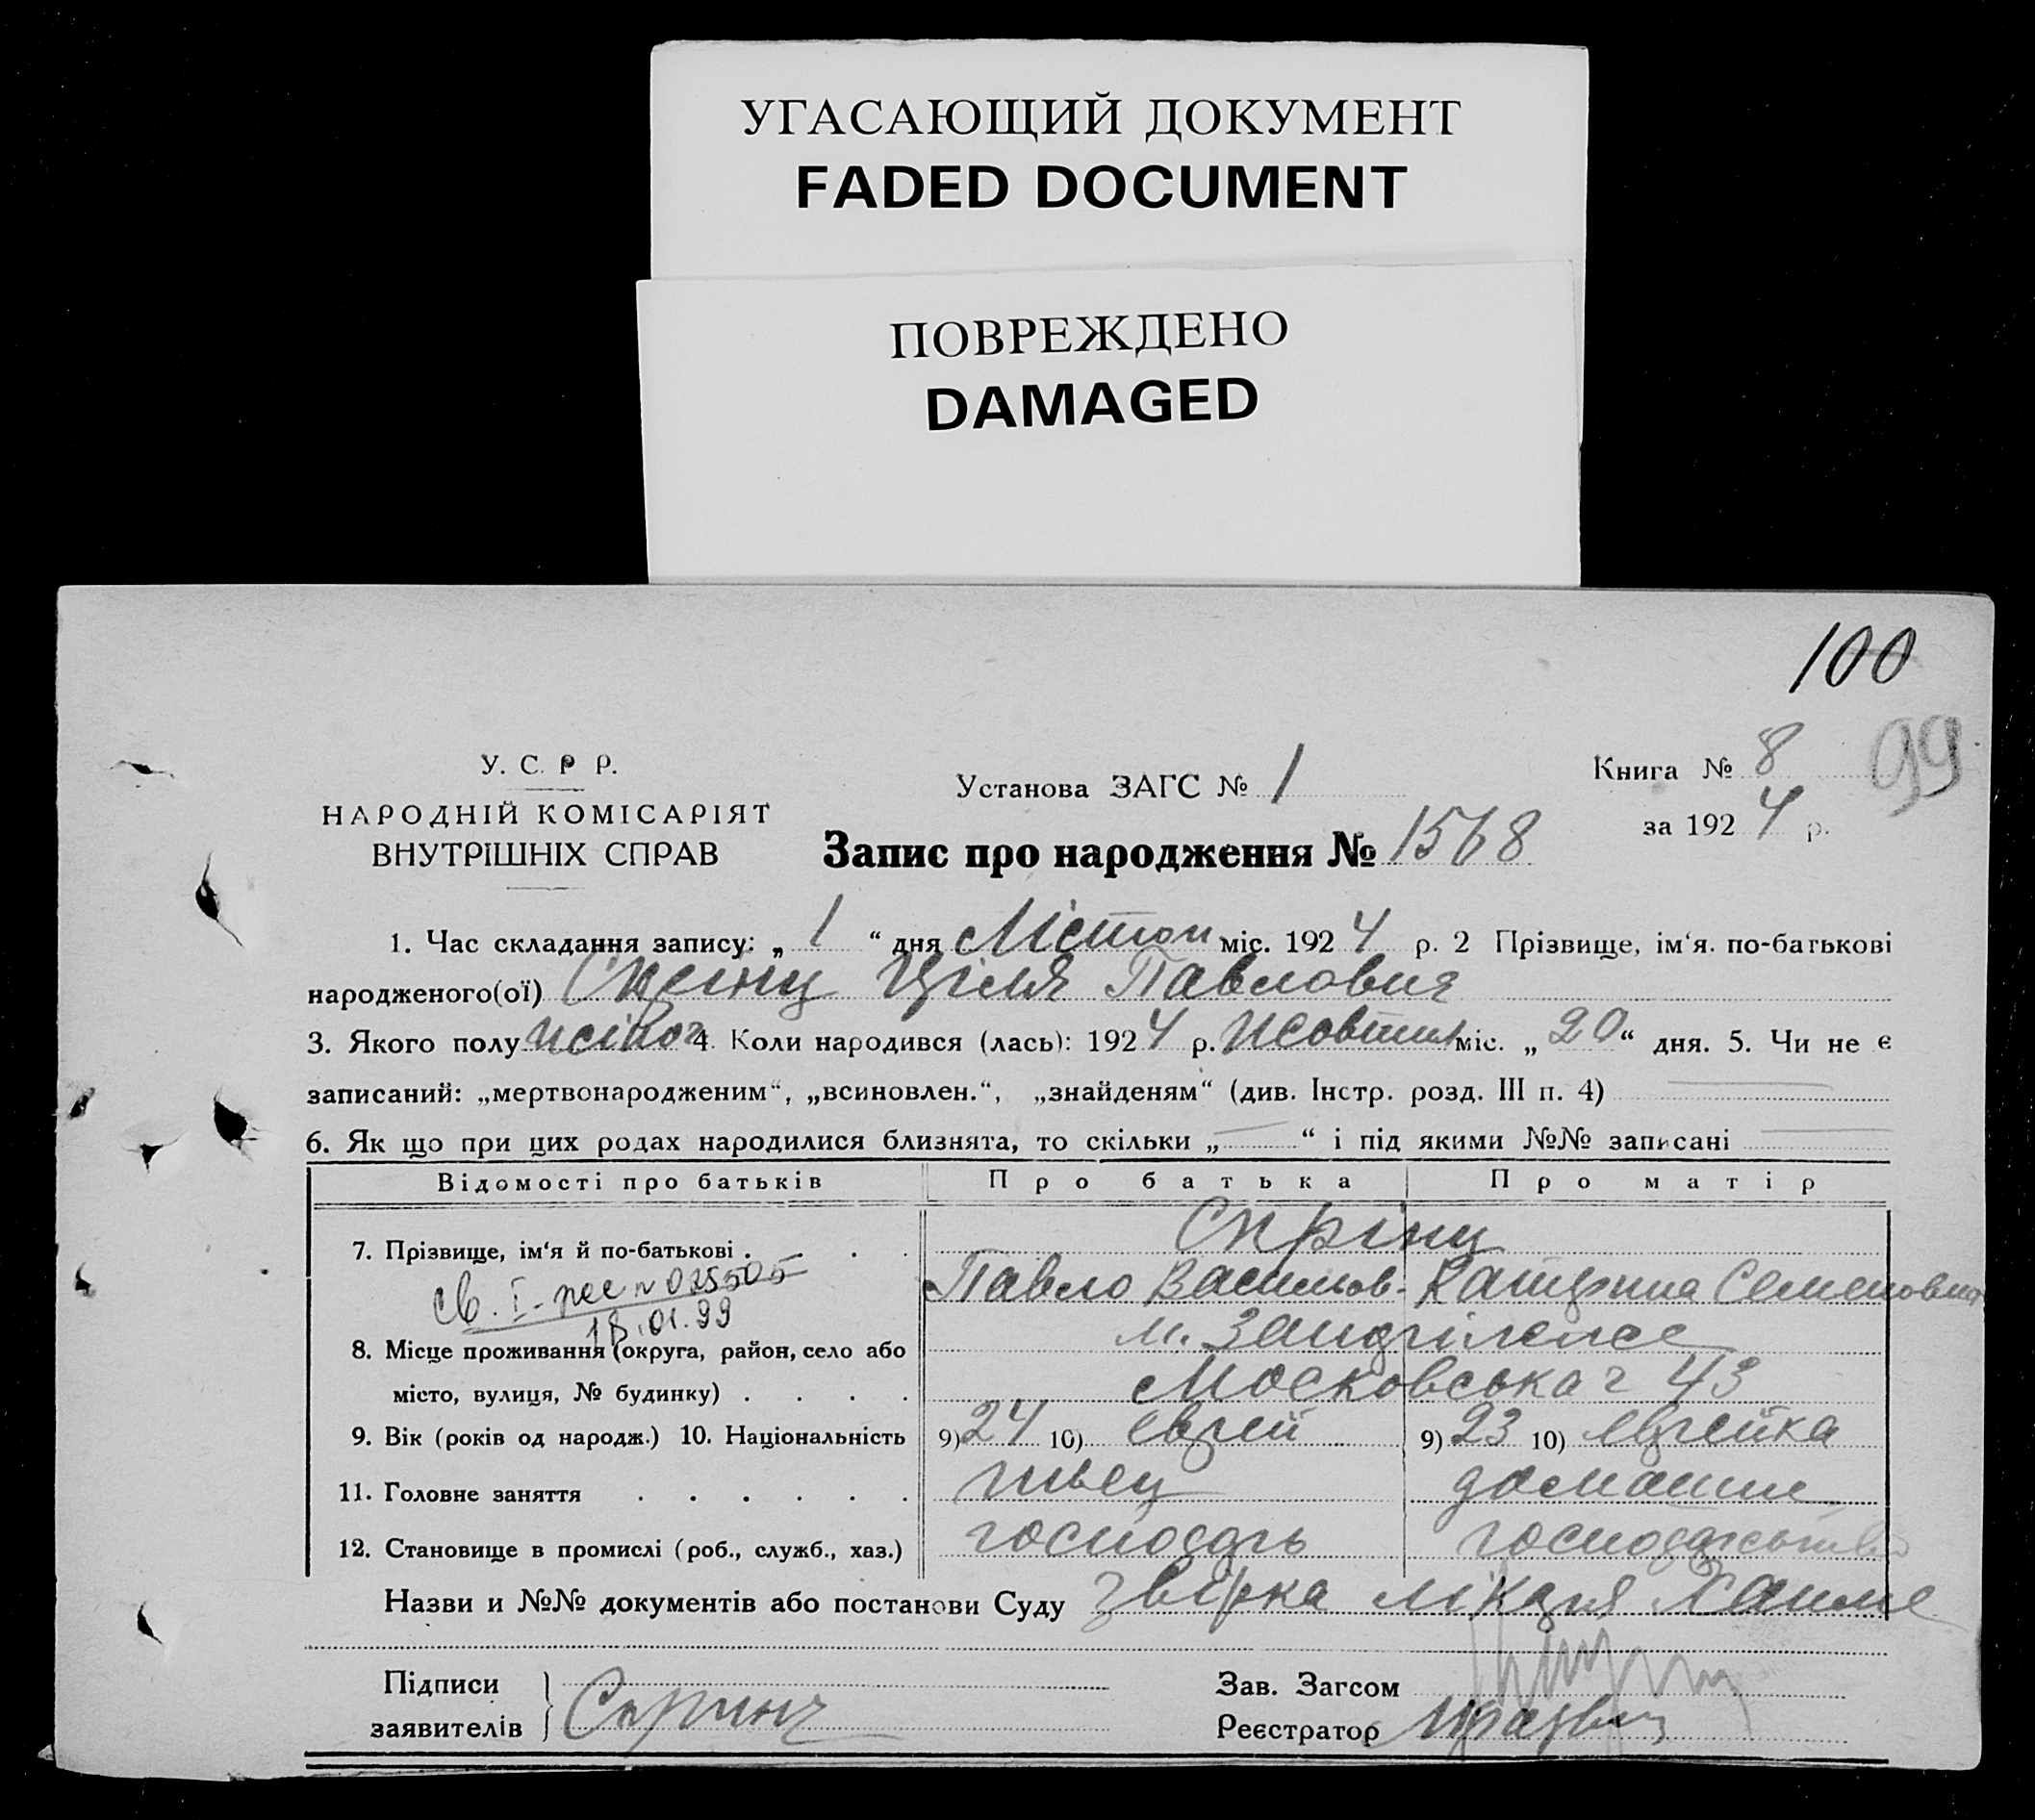 УГАСАЮЩИЙ ДОКУМЕНТ
FADED DOCUMENT
ПОВРЕЖДЕНО
DAMAGED
100
99
У. С. Р Р.
НАРОДНІЙ КОМІСАРІЯТ
ВНУТРІШНІХ СПРАВ
Установа ЗАГС № 1
Книга № 8
за 1924 р.
Запис про народження № 1568
1. Час складання запису: „ 1 “ дня Лістоп міс. 1924 р. 2 Прізвище, ім‘я. по-батькові
народженого(ої) Цгіля Павловна
3. Якого полу жіноч 4. Коли народився (лась): 1924 р. Жовтня міс. „ 20 “ дня. 5. Чи не є
записаний: „мертвонародженим“, „всиновлен.“, „знайденям“ (див. Інстр. розд. III п. 4)
6. Як що при цих родах народилися близнята, то скільки „ “ і під якими №№ записані
Відомості про батьків Про батька Про матір
7. Прізвище, ім‘я й по-батькові Спрінц
Павло Васильов- Катерина Семеновна
св. I- № 025505
18.01.99
м.
8. Місце проживання (округа, район, село або
місто, вулиця, № будинку) Московська 43
9. Вік (років од народж.) 10. Національність 9) 24 10) еврей 9) 23 10) еврейка
11. Головне заняття швец домашнє
12. Становище в промислі (роб., служб., хаз.) господарь господарство
Назви и №№ документів або постанови Суду лікаря
Підписи
заявителів Спринц
Зав. Загсом
Реєстратор